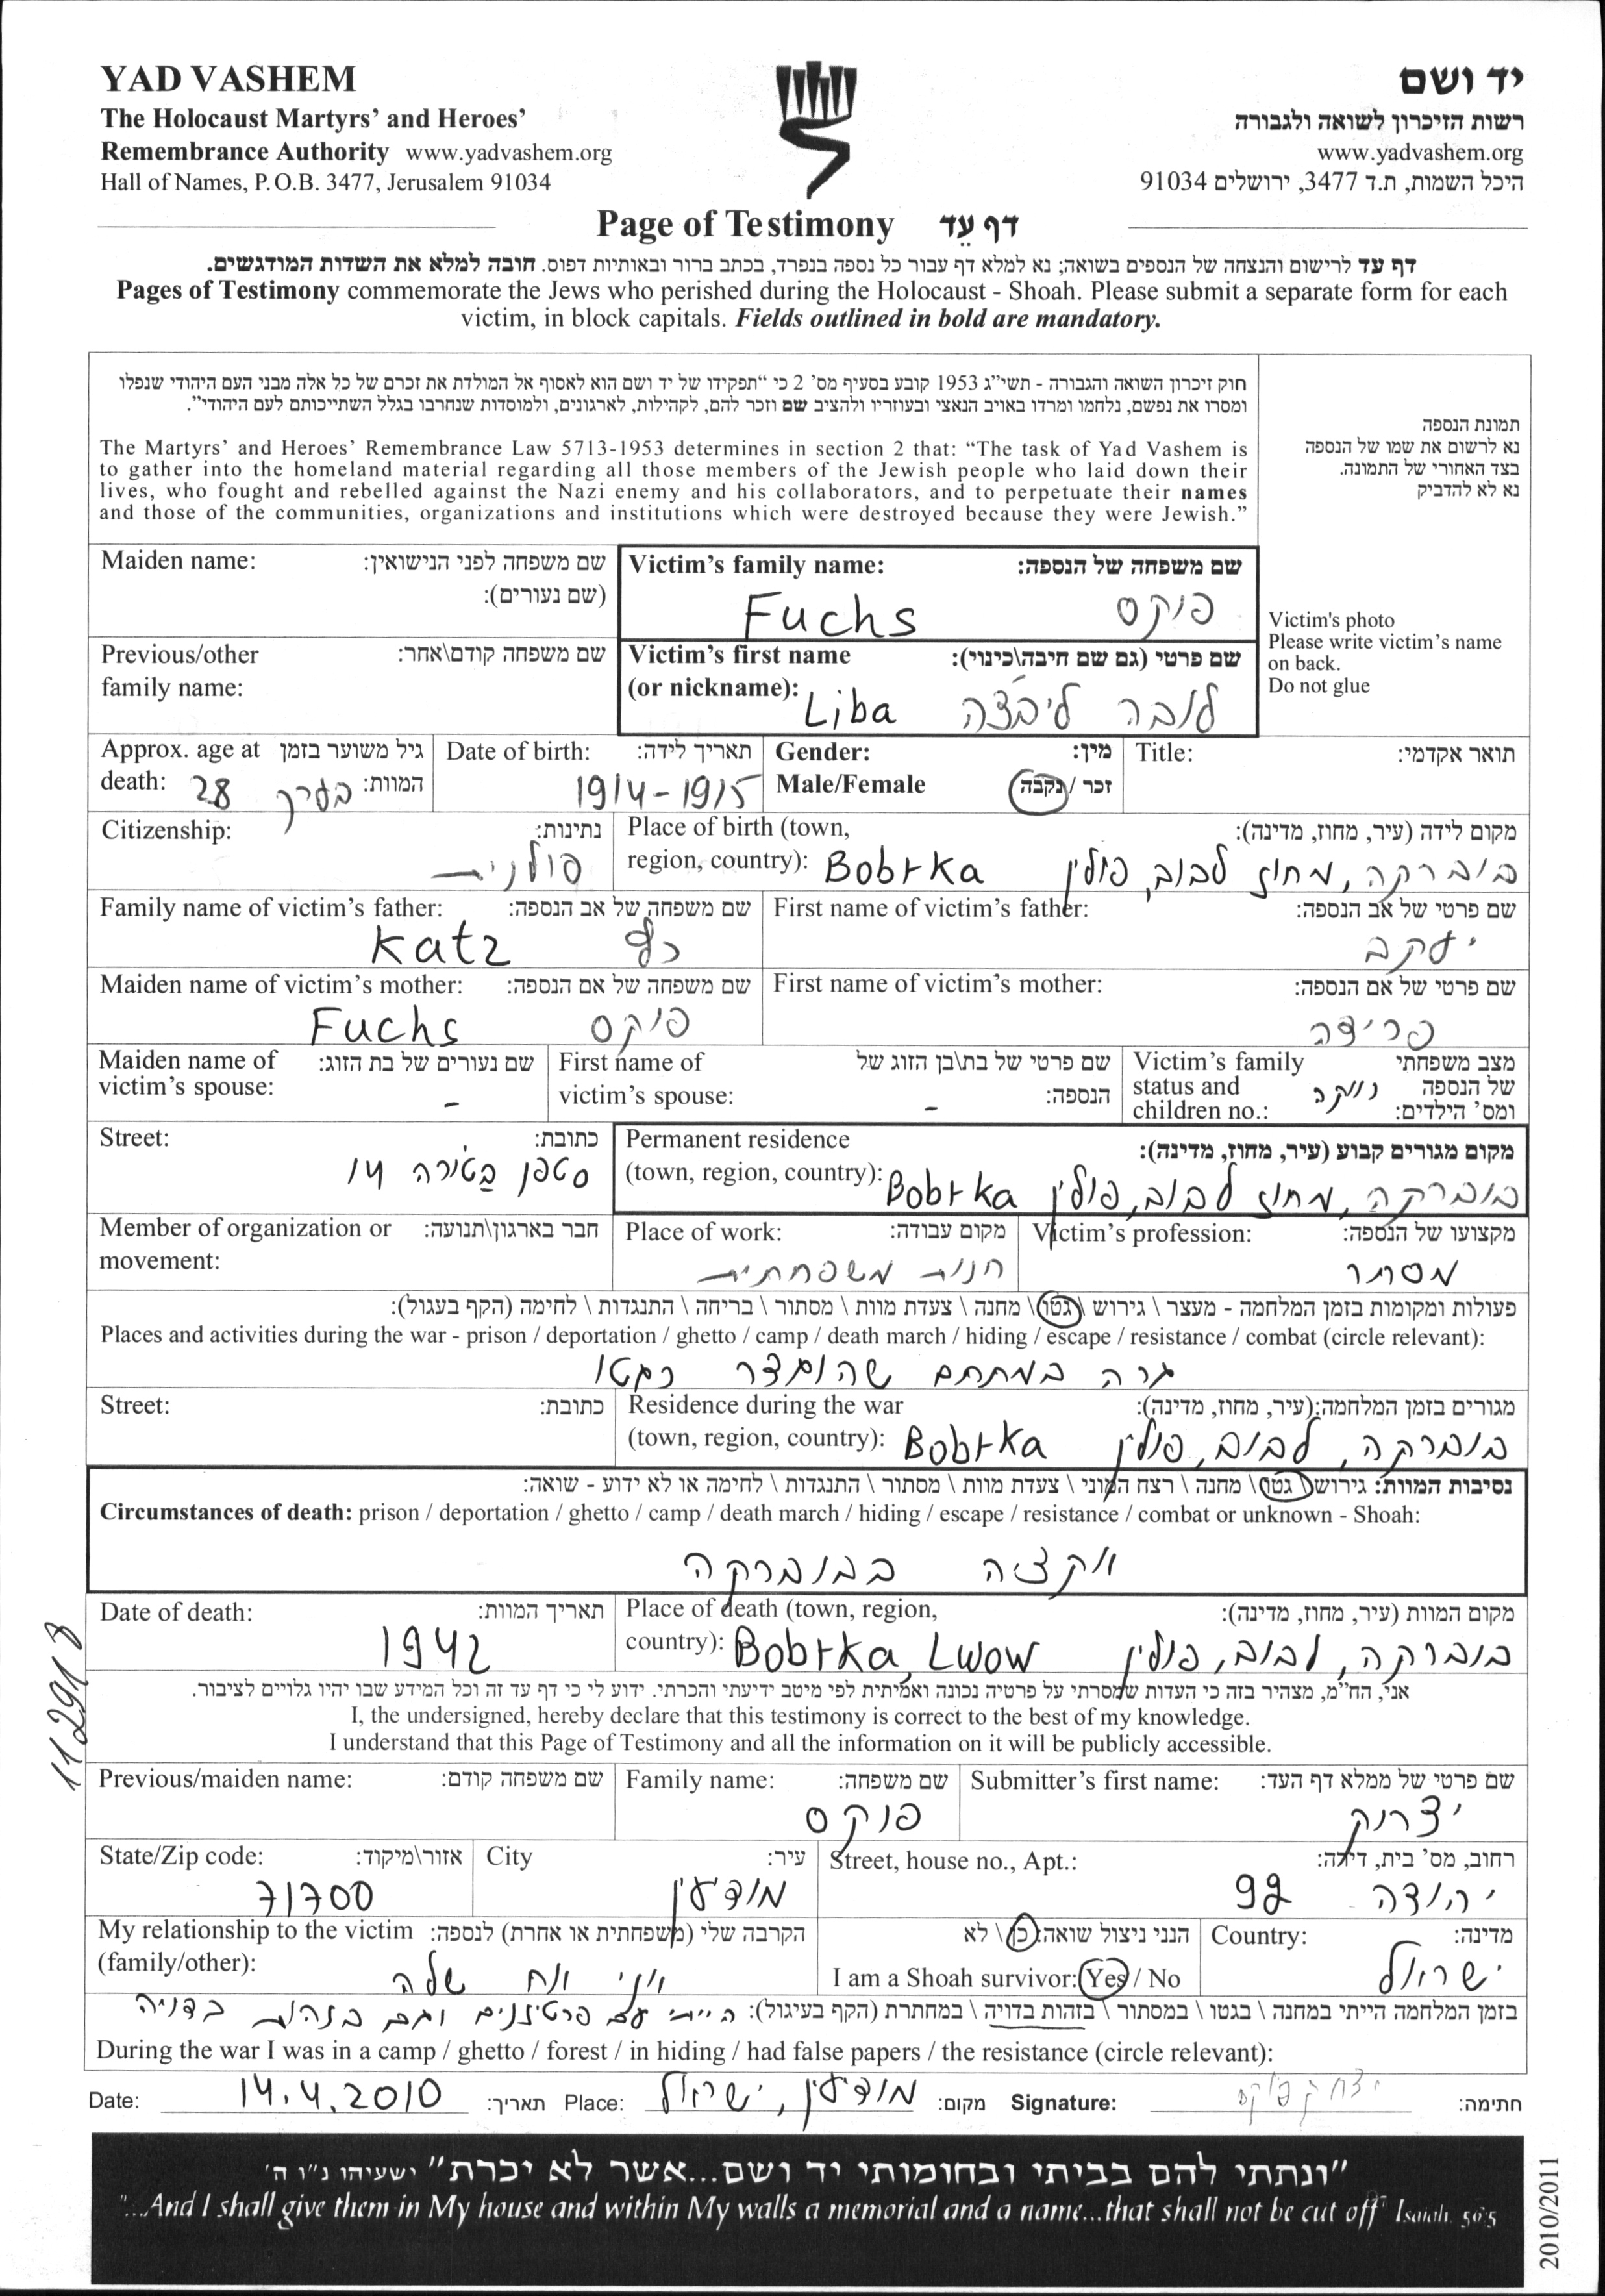 YAD VASHEM יד ושם
The Holocaust Martyrs' and Heroes' רשות הזיכרון לשואה ולגבורה
Remembrance Authority www.yadvashem.org www.yadvashem.org
Hall of Names, P.O.B. 3477, Jerusalem 91034 היכל השמות, ת.ד 3477, ירושלים 91034
Page of Testimony דף עֵד
דף עד לרישום והנצחה של הנספים בשואה; נא למלא דף עבור כל נספה בנפרד, בכתב ברור ובאותיות דפוס. חובה למלא את השדות המודגשים.
Pages of Testimony commemorate the Jews who perished during the Holocaust - Shoah. Please submit a separate form for each
victim, in block capitals. Fields outlined in bold are mandatory.
חוק זיכרון השואה והגבורה - תשי"ג 1953 קובע בסעיף מס' 2 כי "תפקידו של יד ושם הוא לאסוף אל המולדת את זכרם של כל אלה מבני העם היהודי שנפלו
ומסרו את נפשם, נלחמו ומרדו באויב הנאצי ובעוזריו ולהציב שם וזכר להם, לקהילות, לארגונים, ולמוסדות שנחרבו בגלל השתייכותם לעם היהודי".
The Martyrs' and Heroes' Remembrance Law 5713-1953 determines in section 2 that: "The task of Yad Vashem is
to gather into the homeland material regarding all those members of the Jewish people who laid down their
lives, who fought and rebelled against the Nazi enemy and his collaborators, and to perpetuate their names
and those of the communities, organizations and institutions which were destroyed because they were Jewish."
תמונת הנספה
נא לרשום את שמו של הנספה
בצד האחורי של התמונה.
נא לא להדביק
Victim's photo
Please write victim's name
on back.
Do not glue
Maiden name: שם משפחה לפני הנישואין:
(שם נעורים):
Victim's family name: שם משפחה של הנספה:
Fuchs פוקס
Previous/other שם משפחה קודם\אחר:
family name:
Victim's first name שם פרטי (גם שם חיבה\כינוי):
(or nickname): Liba לובה ליבצ'ה
Approx. age at גיל משוער בזמן
death: 28 בערך המוות:
Date of birth: תאריך לידה:
1914-1915
Gender: מין:
Male/Female זכר / נקבה
Title: תואר אקדמי:
Citizenship: נתינות:
פולנית
Place of birth (town, מקום לידה (עיר, מחוז, מדינה):
region, country): Bobrka בוברקה, מחוז לבוב, פולין
Family name of victim's father: שם משפחה של אב הנספה:
Katz כץ
First name of victim's father: שם פרטי של אב הנספה:
יעקב
Maiden name of victim's mother: שם משפחה של אם הנספה:
Fuchs פוקס
First name of victim's mother: שם פרטי של אם הנספה:
פרידה
Maiden name of שם נעורים של בת הזוג:
victim's spouse: -
First name of שם פרטי של בת\בן הזוג של
victim's spouse: - הנספה:
Victim's family מצב משפחתי
status and רווקה של הנספה
children no.: ומס' הילדים:
Street: כתובת:
סטפן בטורה 14
Permanent residence מקום מגורים קבוע (עיר, מחוז, מדינה):
(town, region, country): Bobrka בוברקה, מחוז לבוב, פולין
Member of organization or חבר בארגון\תנועה:
movement:
Place of work: מקום עבודה:
חנות משפחתית
Victim's profession: מקצועו של הנספה:
מסחר
פעולות ומקומות בזמן המלחמה - מעצר \ גירוש \ גטו \ מחנה \ צעדת מוות \ מסתור \ בריחה \ התנגדות \ לחימה (הקף בעגול):
Places and activities during the war - prison / deportation / ghetto / camp / death march / hiding / escape / resistance / combat (circle relevant):
גרה במתחם שהוגדר כגטו
Street: כתובת:
Residence during the war מגורים בזמן המלחמה:(עיר, מחוז, מדינה):
(town, region, country): Bobrka בוברקה, לבוב, פולין
נסיבות המוות: גירוש \ גטו \ מחנה \ רצח המוני \ צעדת מוות \ מסתור \ התנגדות \ לחימה או לא ידוע - שואה:
Circumstances of death: prison / deportation / ghetto / camp / death march / hiding / escape / resistance / combat or unknown - Shoah:
אקציה בבוברקה
Date of death: תאריך המוות:
1942
Place of death (town, region, מקום המוות (עיר, מחוז, מדינה):
country): Bobrka, Lwow בוברקה, לבוב, פולין
אני, הח"מ, מצהיר בזה כי העדות שמסרתי על פרטיה נכונה ואמיתית לפי מיטב ידיעתי והכרתי. ידוע לי כי דף עד זה וכל המידע שבו יהיו גלויים לציבור.
I, the undersigned, hereby declare that this testimony is correct to the best of my knowledge.
I understand that this Page of Testimony and all the information on it will be publicly accessible.
Previous/maiden name: שם משפחה קודם:
Family name: שם משפחה:
פוקס
Submitter's first name: שם פרטי של ממלא דף העד:
יצחק
State/Zip code: אזור\מיקוד:
71700
City עיר:
מודעין
Street, house no., Apt.: רחוב, מס' בית, דירה:
יהודה 92
My relationship to the victim הקרבה שלי (משפחתית או אחרת) לנספה:
(family/other): אני אח שלה
הנני ניצול שואה: כן \ לא
I am a Shoah survivor: Yes / No
Country: מדינה:
ישראל
בזמן המלחמה הייתי במחנה \ בגטו \ במסתור \ בזהות בדויה \ במחתרת (הקף בעיגול): הייתי עם פרטיזנים וגם בזהות בדויה
During the war I was in a camp / ghetto / forest / in hiding / had false papers / the resistance (circle relevant):
Date: 14.4.2010 תאריך: Place: מודעין, ישראל מקום: Signature: יצחק פוקס חתימה:
"ונתתי להם בביתי ובחומותי יד ושם...אשר לא יכרת" ישעיהו נ"ו ה'
"...And I shall give them in My house and within My walls a memorial and a name...that shall not be cut off" Isaiah 56:5
2010/2011